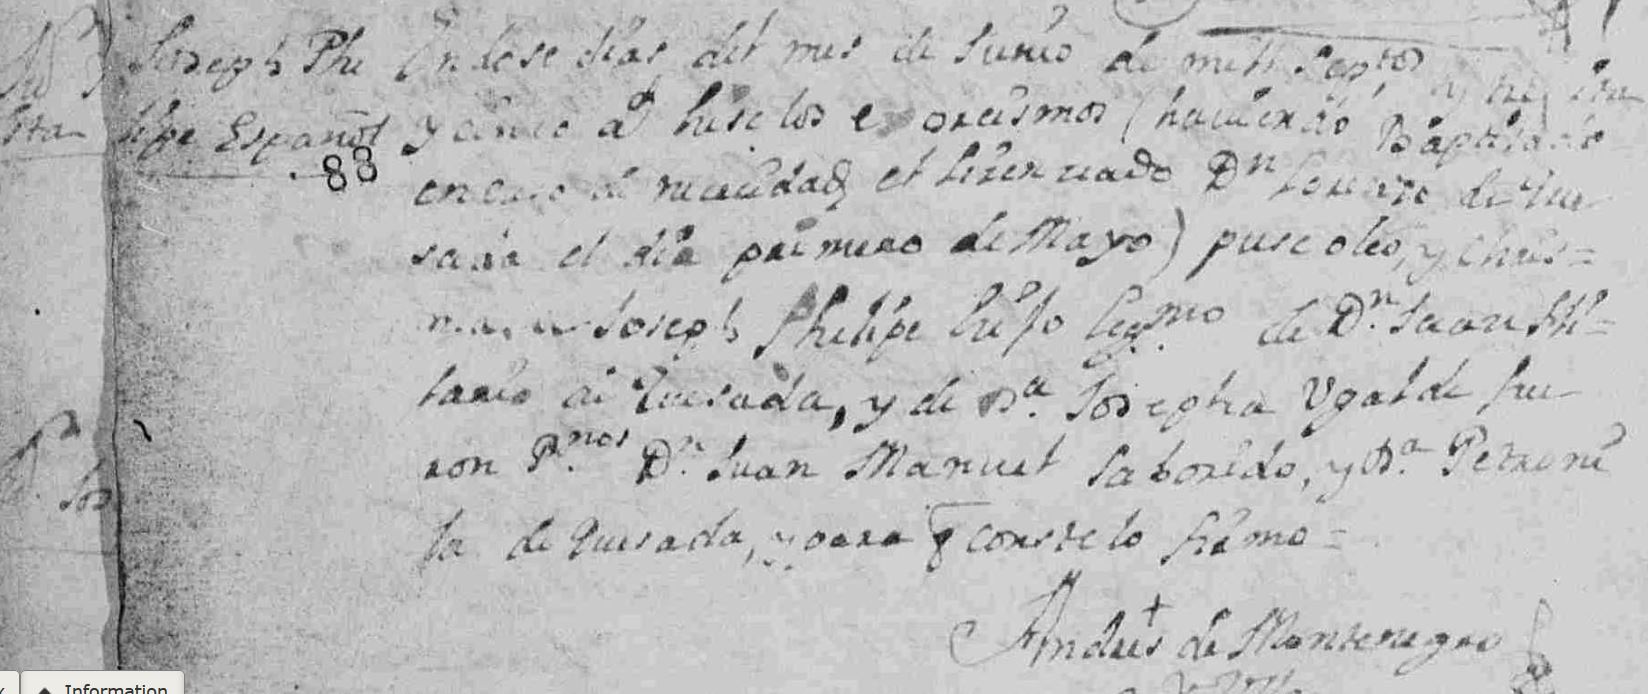 Joseph Phe
lipe Español
88
En dose dias del mes de Junio de mill septos y treinta
y cinco as hise los exorcismos (haviendo Baptisado
en caso de necesidad el Lisenciado Dn Lorenzo de Que
sada el dia primero de Mayo) puse oleo, y chris=
ma, a Joseph Phelipe hijo legmo de Dn Juan Hi=
lario de Quesada, y de Da. Josepha Ugalde fue
ron P.nos Dn Juan Manuel Saborido, y Da. Petroni
la de Quesada, y para q conste lo firmo=
Andres de Montenegro
Information